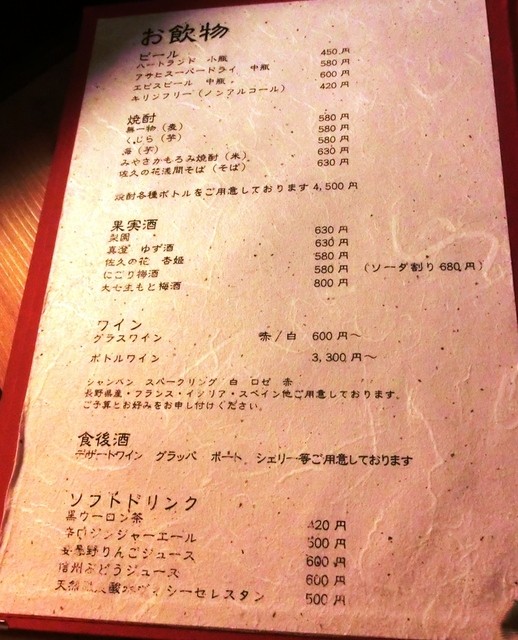 お飲物
ビール
ハートランド 小瓶 450円
アサヒスーパードライ 中瓶 580円
エビスビール 中瓶 600円
キリンフリー（ノンアルコール） 420円
焼酎
無一物（麦） 580円
くじら（芋） 580円
海（芋） 580円
みやさかもろみ焼酎（米） 630円
佐久の花浅間そば（そば） 630円
焼酎各種ボトルをご用意しております 4,500円
果実酒
梨園 630円
真澄 ゆず酒 630円
佐久の花 杏姫 580円
にごり梅酒 580円 （ソーダ割り 680円）
大七生もと梅酒 800円
ワイン
グラスワイン 赤/白 600円～
ボトルワイン 3,300円～
シャンパン スパークリング 白 ロゼ 赤
長野県産・フランス・イタリア・スペイン他ご用意しております。
ご予算とお好みをお申し付けください。
食後酒
デザートワイン グラッパ ポート シェリー等ご用意しております
ソフトドリンク
黒ウーロン茶 420円
辛口ジンジャーエール 500円
安曇野りんごジュース 600円
信州ぶどうジュース 600円
天然炭酸水ヴィシーセレスタン 500円